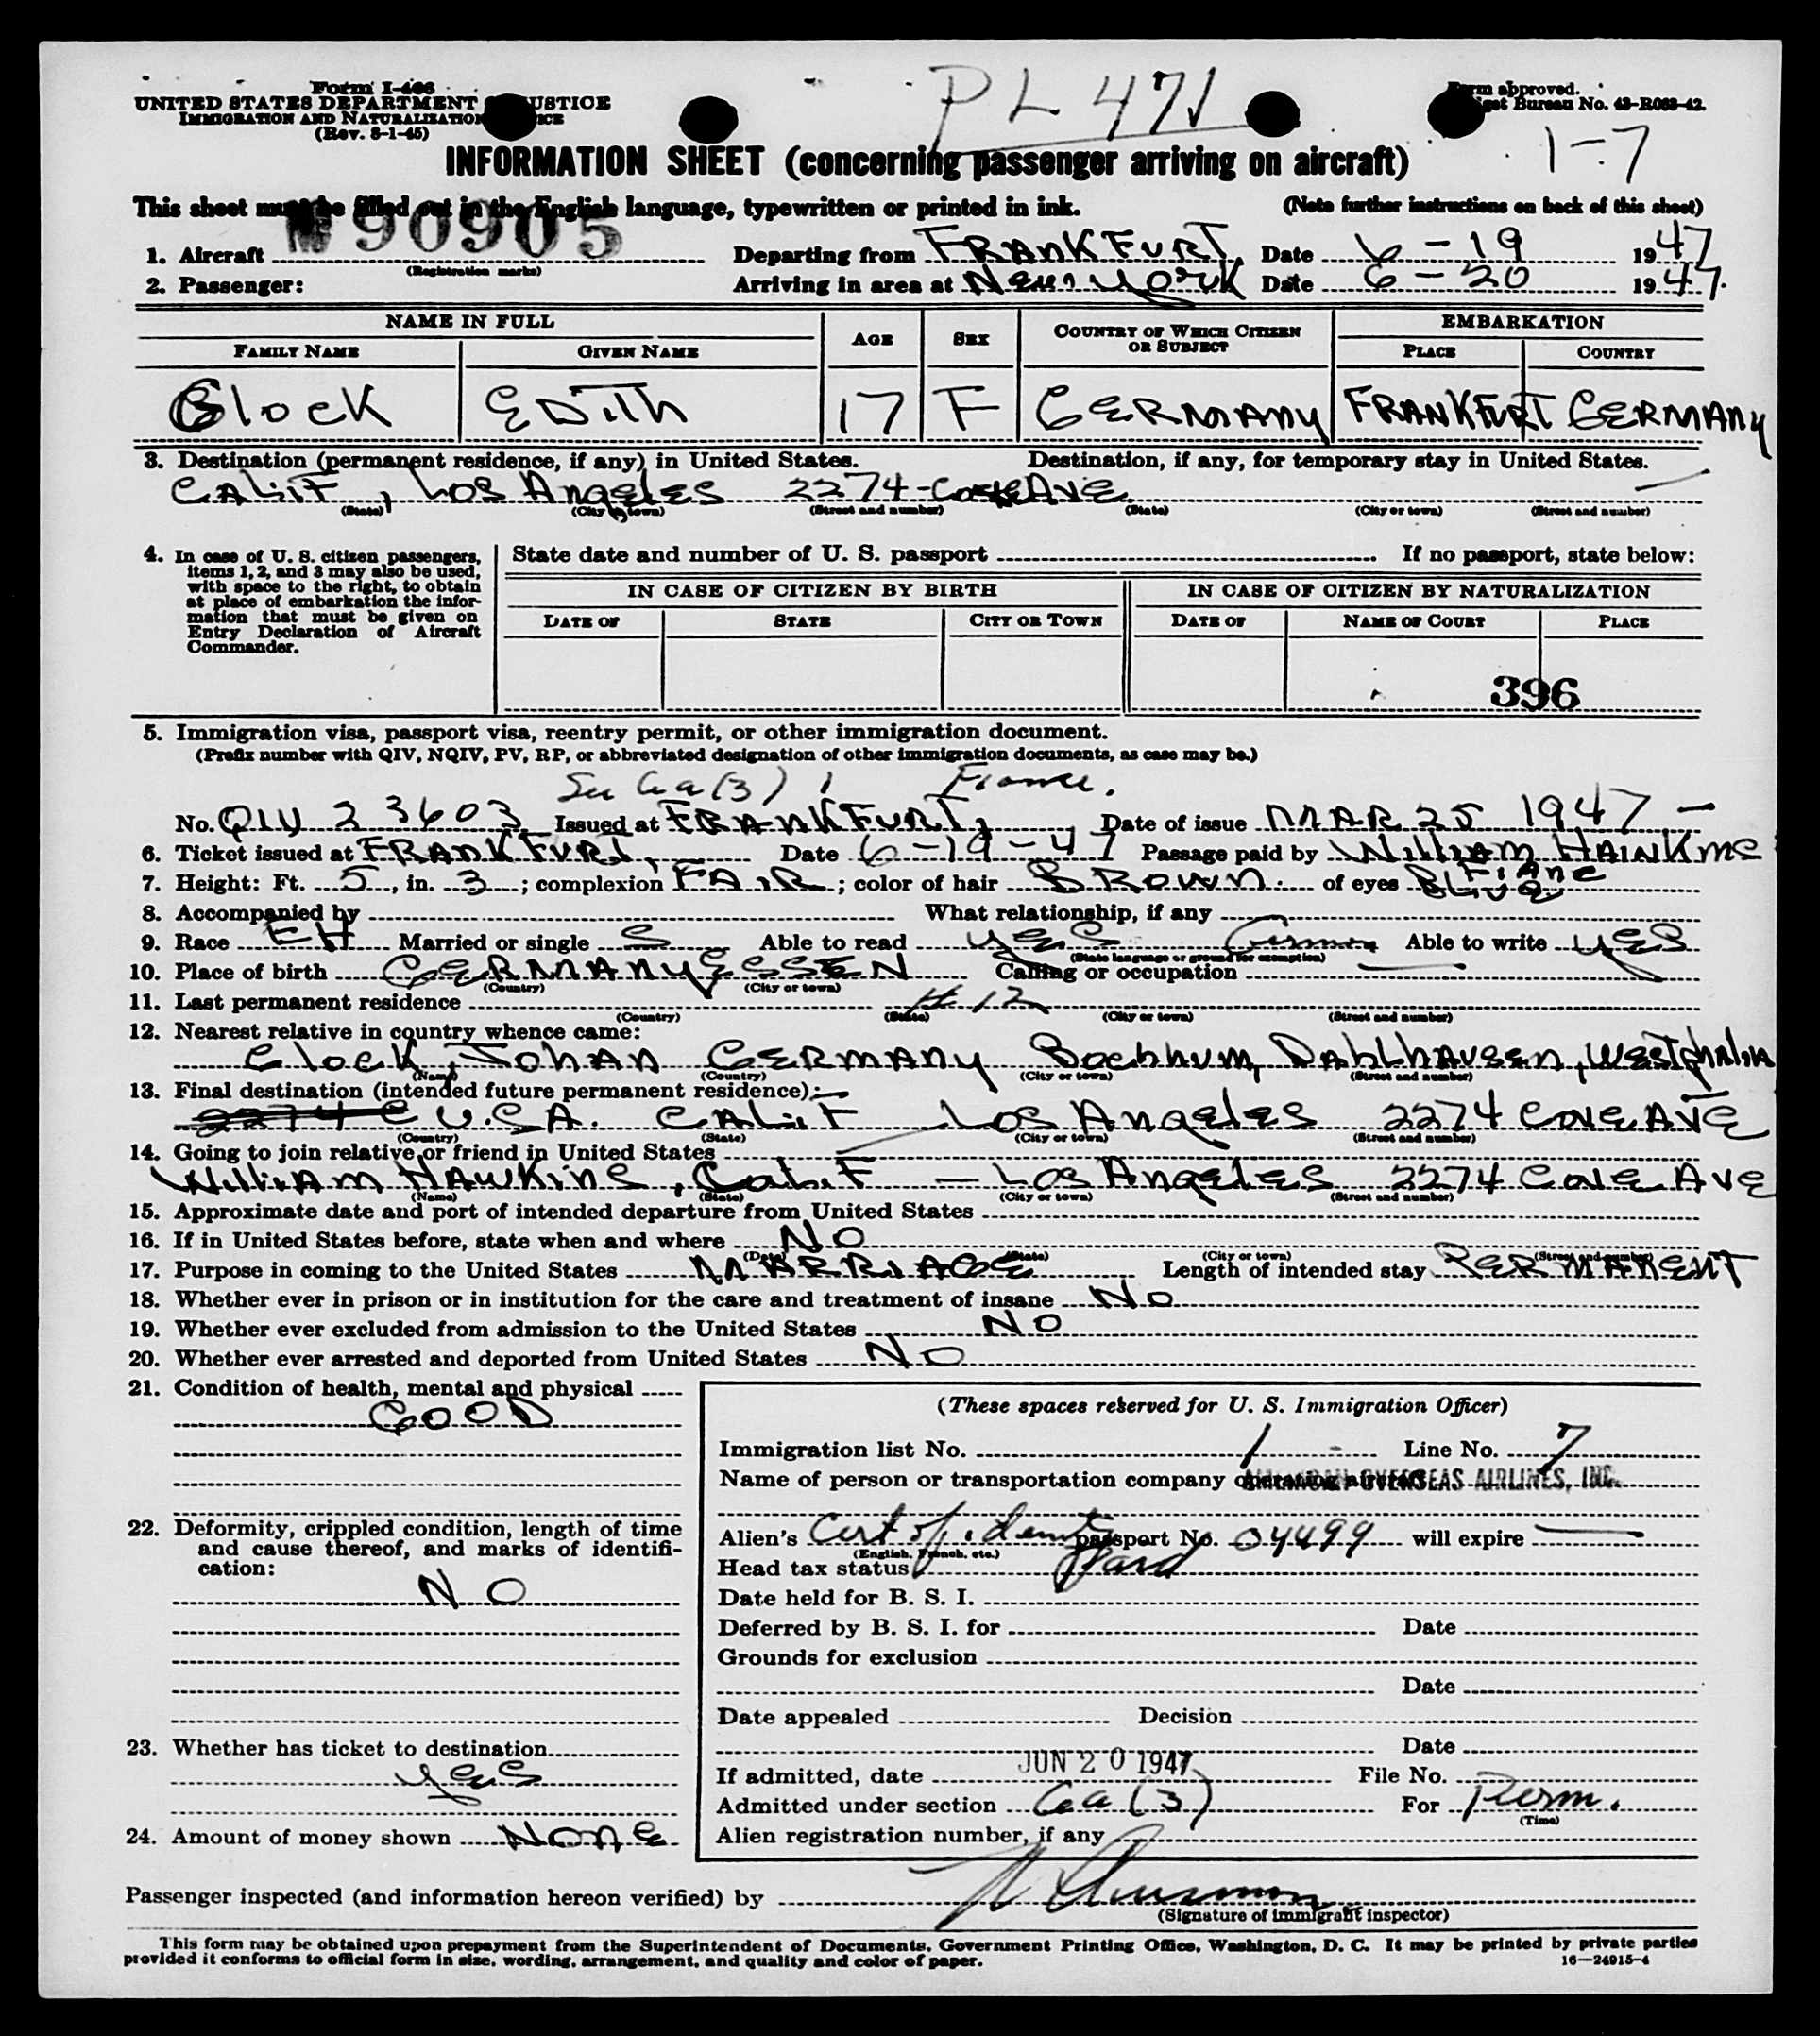 Form I-466
UNITED STATES DEPARTMENT JUSTICE
IMMIGRATION AND NATURALIZATION
(Rev. 8-1-45)
PL 471
Form approved.
Budget Bureau No. 43-R063-42.
1-7
INFORMATION SHEET (concerning passenger arriving on aircraft)
This sheet must be filled out in the English language, typewritten or printed in ink. (Note further instructions on back of this sheet)
1. Aircraft N 90905 (Registration marks) Departing from FRANKFURT, Date 6-19 1947
2. Passenger: Arriving in area at New York Date 6-20 1947.
NAME IN FULL AGE SEX COUNTRY OF WHICH CITIZEN OR SUBJECT EMBARKATION
FAMILY NAME GIVEN NAME PLACE COUNTRY
Glock EDITH 17 F GERMANY FRANKFURT GERMANY
3. Destination (permanent residence, if any) in United States. Destination, if any, for temporary stay in United States.
CALIF, Los Angeles 2274 Ave —
(State) (City or town) (Street and number) (State) (City or town) (Street and number)
4. In case of U. S. citizen passengers, items 1, 2, and 3 may also be used, with space to the right, to obtain at place of embarkation the information that must be given on Entry Declaration of Aircraft Commander.
State date and number of U. S. passport If no passport, state below:
IN CASE OF CITIZEN BY BIRTH IN CASE OF CITIZEN BY NATURALIZATION
DATE OF STATE CITY OR TOWN DATE OF NAME OF COURT PLACE
396
5. Immigration visa, passport visa, reentry permit, or other immigration document.
(Prefix number with QIV, NQIV, PV, RP, or abbreviated designation of other immigration documents, as case may be.)
Sec 6a(3)
No. QIV 23603 Issued at FRANKFURT, Date of issue MAR 25 1947 —
6. Ticket issued at FRANKFURT, Date 6-19-47 Passage paid by William
7. Height: Ft. 5, in. 3; complexion FAIR; color of hair BROWN. of eyes BLUE
8. Accompanied by What relationship, if any
9. Race EH Married or single S Able to read YES German Able to write YES
(State language or ground for exemption)
10. Place of birth GERMANY ESSEN Calling or occupation —
(Country) (City or town)
11. Last permanent residence # 12
(Country) (State) (City or town) (Street and number)
12. Nearest relative in country whence came:
Glock, Johan GERMANY Bochhum, Dahlhausen, Westphalia
(Name) (Country) (City or town) (Street and number)
13. Final destination (intended future permanent residence):
U.S.A. CALIF Los Angeles 2274 Cove AVE
(Country) (State) (City or town) (Street and number)
14. Going to join relative or friend in United States
William HAWKins, Calif — Los Angeles 2274 Cove Ave
(Name) (State) (City or town) (Street and number)
15. Approximate date and port of intended departure from United States
16. If in United States before, state when and where NO
(Date) (State) (City or town) (Street and number)
17. Purpose in coming to the United States MARRIAGE Length of intended stay PERMANENT
18. Whether ever in prison or in institution for the care and treatment of insane No
19. Whether ever excluded from admission to the United States NO
20. Whether ever arrested and deported from United States NO
21. Condition of health, mental and physical
GOOD
22. Deformity, crippled condition, length of time and cause thereof, and marks of identification:
NO
23. Whether has ticket to destination
yes
24. Amount of money shown None
(These spaces reserved for U. S. Immigration Officer)
Immigration list No. 1 - Line No. 7
Name of person or transportation company operating aircraft AMERICAN OVERSEAS AIRLINES, INC.
Alien's Cert of Ident passport No. 04499 will expire —
(English, French, etc.)
Head tax status Paid
Date held for B. S. I.
Deferred by B. S. I. for Date
Grounds for exclusion
Date
Date appealed Decision
Date
If admitted, date JUN 20 1947 File No.
Admitted under section 6a(3) For Perm.
(Time)
Alien registration number, if any
Passenger inspected (and information hereon verified) by
(Signature of immigrant inspector)
This form may be obtained upon prepayment from the Superintendent of Documents, Government Printing Office, Washington, D. C. It may be printed by private parties
provided it conforms to official form in size, wording, arrangement, and quality and color of paper. 16—24915-4